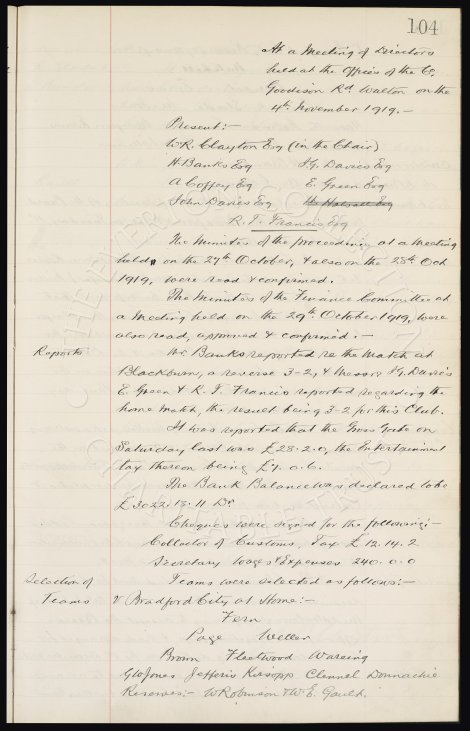 104
At a Meeting of Directors
held at the Offices of the Co.
Goodison Rd. Walton on the
4th November 1919.—
Present:—
W.R. Clayton Esq (in the Chair)
H. Banks Esq J.G. Davies Esq
A Coffey Esq E. Green Esq
John Davies Esq
R. F. Francis Esq
The Minutes of the proceedings at a Meeting
held on the 27th October, & also on the 28th Oct
1919, were read & confirmed.
The Minutes of the Finance Committee at
a Meeting held on the 29th October 1919, were
also read, approved & confirmed.—
Reports Mr Banks reported re the match at
Blackburn, a reverse 3-2, & Messrs J.G. Davies
E. Green & R. F. Francis reported regarding the
home match, the result being 3-2 for this Club.
It was reported that the Gross Gate on
Saturday last was £28.2.0, the Entertainment
tax thereon being £7.0.6.
The Bank Balance was declared to be
£3022.13.11 Dr.
Cheques were signed for the following:—
Collector of Customs, Tax £12.14.2
Secretary Wages & Expenses 240.0.0
Selection of Teams were selected as follows:—
Teams v Bradford City at Home:—
Fern
Page Weller
Brown Fleetwood Wareing
G W Jones Jefferis Kirsopp Clennel Donnachie
Reserves:— W Robinson & W. E. Gault.